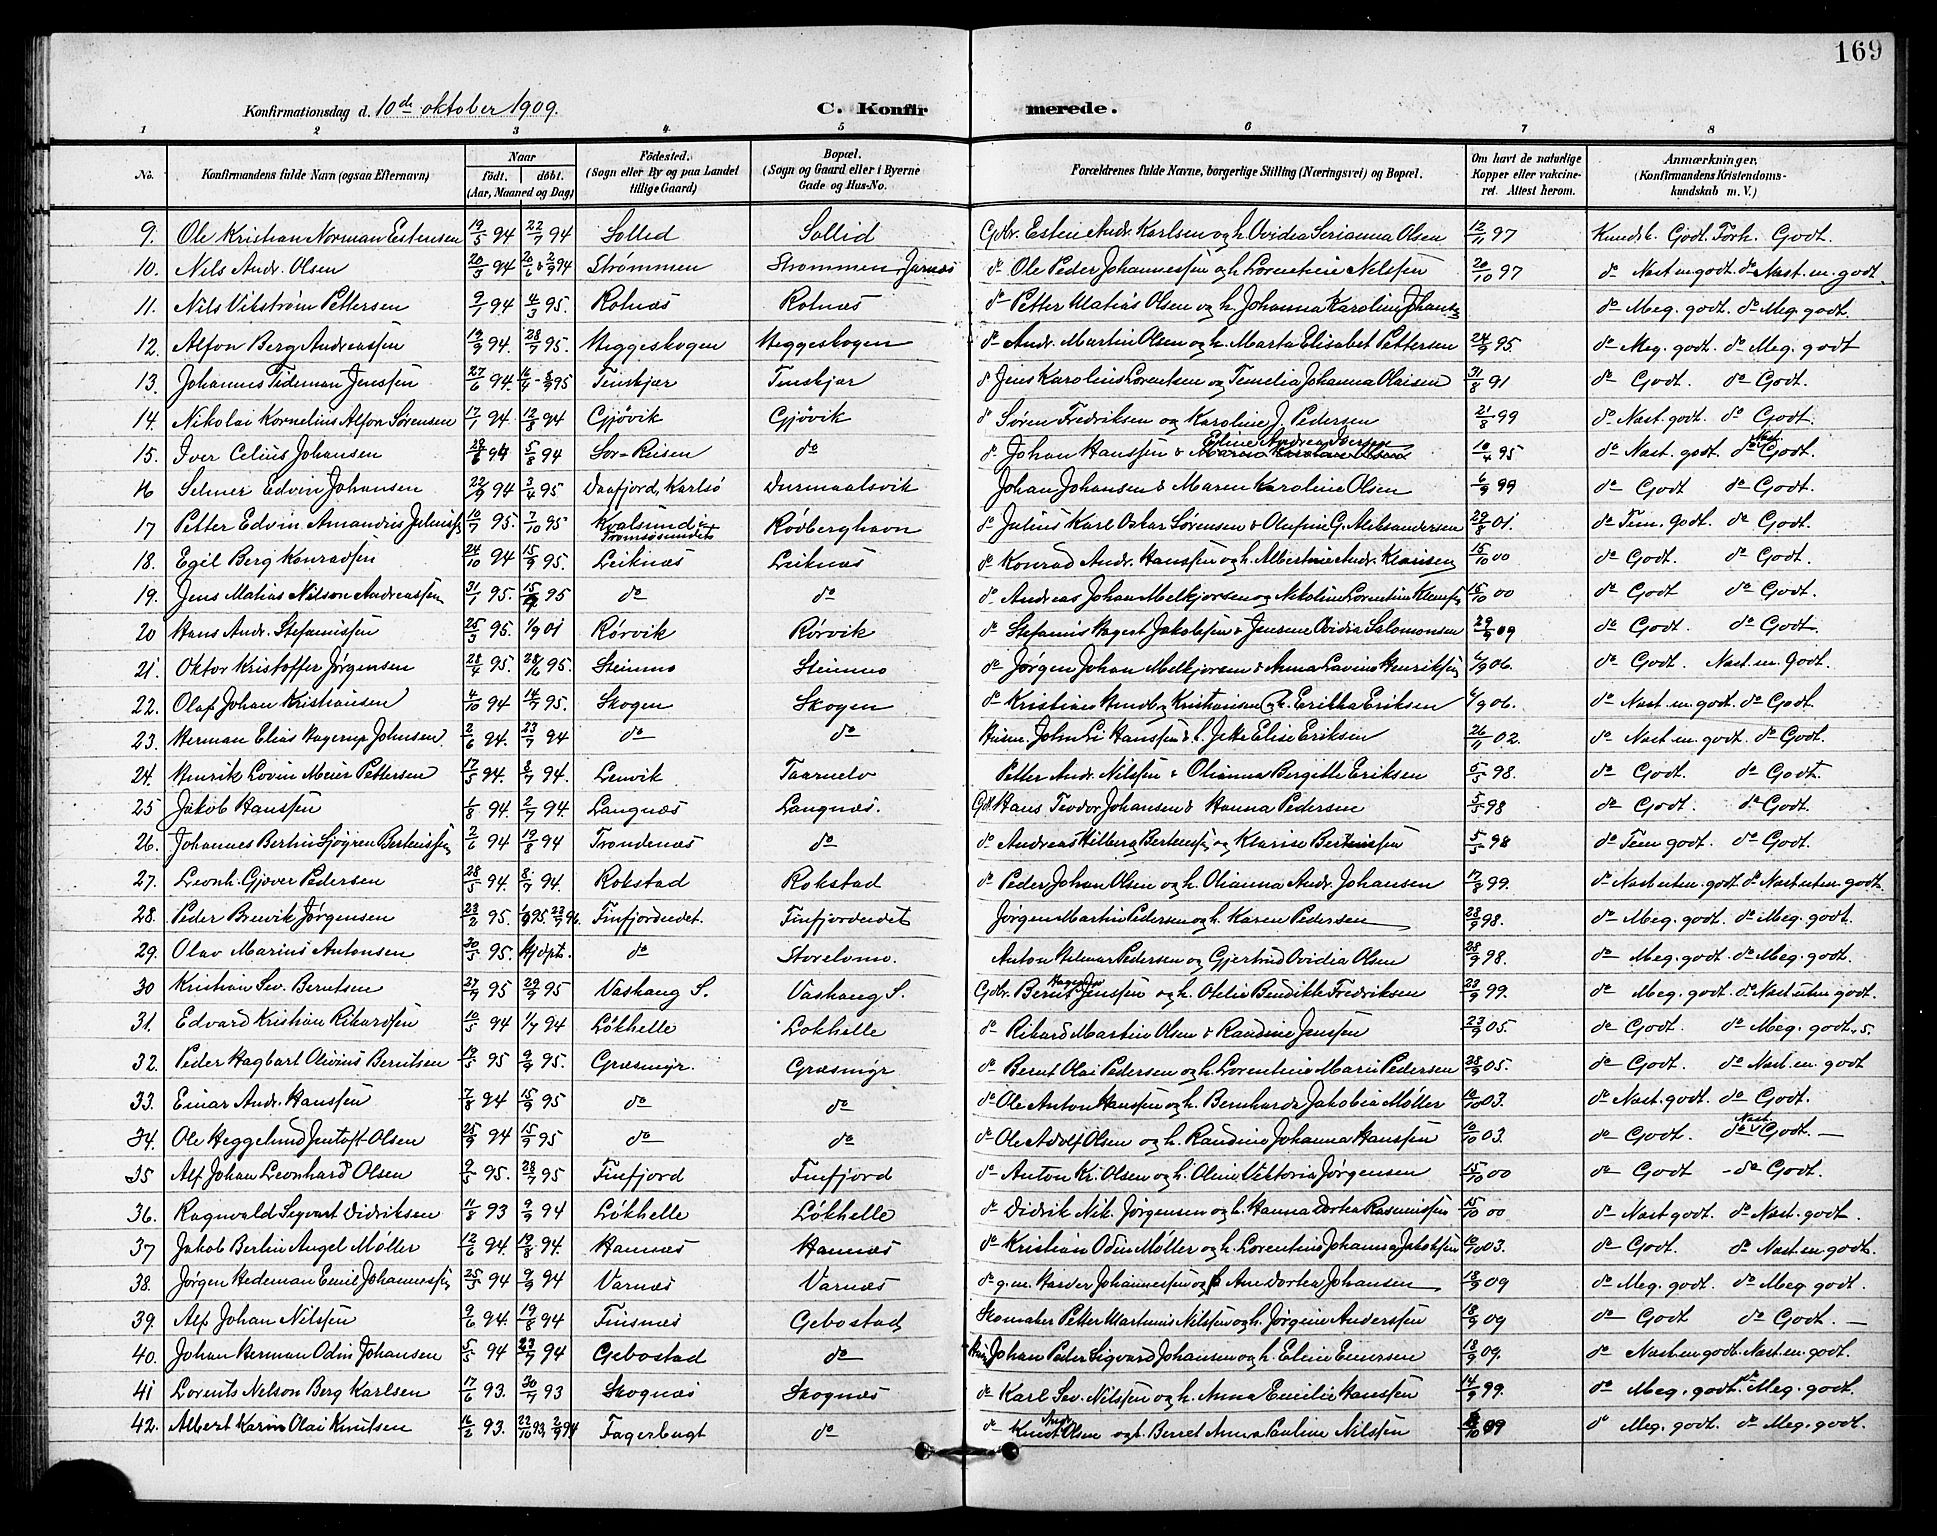 169
Konfirmationsdag d. 10de oktober 1909.
C. Konfirmerede.
1 2 3 4. 5 6 7 8
No. Konfirmandens fulde Navn (ogsaa Efternavn) Naar födt. döbt. (Aar, Maaned og Dag) Födested. (Sogn eller By og paa Landet tillige Gaard) Bopæl. (Sogn og Gaard eller i Byerne Gade og Hus-No. Forældrenes fulde Navne, borgerlige Stilling (Næringsvei) og Bopæl. Om havt de naturlige Kopper eller vakcineret. Attest herom. Anmærkninger. (Konfirmandens Kristendomskundskab m. V.)
9. Ole Kristian Norman Estensen 19/5 94 22/7 94 Sollid Sollid Gbr. Esten Andr. Karlsen og h. Ovidia Serianna Olsen 12/11 97 Kundsk. Godt. Forh. Godt.
10. Nils Andr. Olsen 20/3 94 Strømmen Strømmen Jernæs do Ole Peder Johannessen og h. Lorentine Nilsen 20/10 97 do Nast. m. godt. do Nast. m. godt
11. Nils Vikström Pettersen 9/1 94 4/3 95. Rotnæs Rotnæs do Petter Matias Olsen og h. Johanna Karoline do Meg. godt. do Meg. godt.
12. Alfon Berg Andreassen 13/9 94. 28/7 95. Heggeskogen Heggeskogen do Andr. Martin Olsen og h. Marta Elisabet Pettersen 24/9 95. do Meg. godt. do Meg. godt
13. Johannes Tideman Jenssen 27/6 94. Finskjær Finskjær do Jens Karolius Lorentsen og Temelia Johanna Olaisen 31/8 91 do Godt. do Godt.
14. Nikolai Kornelius Alfon Sørensen 17/1 94 12/8 94 Gjövik Gjövik do Søren Fredriksen og Karoline J. Pedersen 21/8 99 do Nast. godt. do Godt.
15. Iver Celius Johansen 94 5/8 94 Sor-Reisen do do Johan Hanssen & Eline Andrea Iversen 10/4 95 do Nast. godt. do Nast. Godt.
16 Selmer Edvin Johansen 22/9 94 3/4 95. Daafjord, Karlsö Durmaalsvik Johan Johansen & Maren Karoline Olsen 6/9 99 do Godt do Godt.
17 Petter Edvin Amandius 10/7 95. 7/10 95 Kvalsund i Tromsøsundet Rødberghavn do Julius Karl Oskar Sørensen & Olufine G. Aleksandersen 29/8 01. do Tem. godt. do Godt.
18. Egil Berg Konradsen 24/10 94 15/9 95. Leiknæs Leiknæs do Konrad Andr. Hanssen og h. Albertine Andr. Klausen 15/10 00 do Godt. do Godt.
19. Jens Matias Nilson Andreassen 31/1 95. 15/9 95 do do do Andreas Johan Melkjorsen og Nikoline Lorentine 15/10 00 do Godt do Godt.
20 Hans Andr. Stefanussen 25/3 95. 1/9 01 Rørvik Rørvik do Stefanus Hagert Jakobsen & Jensine Ovidia Salomonsen 29/9 09 do Godt. do Godt.
21. Oktav Kristoffer Jørgensen 28/4 95. 95. Steinmo Steinmo do Jørgen Johan Melkjorsen & Anna Lavina Henriksen 06. do Godt. Nast. m. Godt.
22. Olaf Johan Kristiansen 4/10 94 14/7 95. Skogen Skogen do Kristian Kristiansen og h. Erikka Eriksen 06. do Nast. m. godt. do Godt.
23. Herman Elias Hagerup Johnsen 2/6 94. 23/7 94 do do John Li Hanssen & h. Elise Eriksen 26/11 02. do Nast. m. godt. do Godt.
24. Henrik Lovin Meier Pettersen 17/5 94. 8/7 94. Lenvik Taarnelv Petter Andr. Nilssen & Olianna Bergette Eriksen 5/5 98. do Godt. do Godt.
25 Jakob Hanssen 1/8 94. 2/7 94. Langnæs Langnæs. Gbr. Hans Teodor Johansen & Hanna Pedersen 5/5 98 do Godt. do Godt.
26. Johannes Bertin Sjögren 2/6 94 19/8 94 Trondenæs do do Andreas Hilberg og Klarine 5/5 98 do Tem. godt. do Godt.
27. Leonh. Gjøver Pedersen 28/5 94. 8/7 94. Rokstad Rokstad do Peder Johan Olsen og h. Olianna Andr. Johansen 17/8 99. do Nast. uten. godt do Nast. uten. godt.
28. Peder Brevik Jørgensen 23/2 95. Finfjordeidet. Finfjordeidet Jørgen Martin Pedersen og h. Karen Pedersen 28/9 98. do Meg. godt. do Meg. godt.
29. Olav Marius Antonsen 30/5 95. Hjdøpt. do Storelvmo. Anton Hilmar Pedersen og Gjertrud Ovidia Olsen 28/9 98. do Meg. godt. do Meg. godt.
30 Kristian Sev. Berntsen 27/7 95 29/9 95 Vashaug S. Vashaug S. Gbr. Bernt Jenssen og h. Otelie Bendikke Fredriksen 23/9 99. do Meg. godt. do Nast. uten godt.
31. Edvard Kristian Rikardsen 10/5 94 1/7 94 Løkhelle Løkhelle do Rikard Martin Olsen & Randine Jenssen 23/9 05. do Godt. do Meg. godt.
32. Peder Hagbart Olivius Berntsen 19/5 95 9/9 95. Græsmyr. Græsmyr do Bernt Olai Pedersen og h. Lorentine Marie Pedersen 28/9 05. do Godt. do Nast. m. godt
33. Einar Andr. Hanssen 7/8 94 15/9 95 do do do Ole Anton Hanssen og h. Bernharda Jakobia Møller 10/10 03. do Nast. godt. do Godt.
34. Ole Heggelund Jentoft Olsen 25/9 94 15/9 95 do do do Ole Adolf Olsen og h. Randine Johanna Hanssen 10/10 03. do Godt. do Nast. Godt. —
35 Alf Johan Leonhard Olsen 2/5 95. 28/7 95 Finfjord Finfjord do Anton Kr. Olsen og h. Oline Viktoria Jørgensen 15/10 00 do Godt - do Godt.
36. Ragnvald Sigvart Didriksen 11/8 93 9/9 94 Løkhelle Løkhelle do Didrik Nik. Jørgensen og h. Hanna Dorthea Rasmussen 15/10 00 do Nast godt. do Nast. godt.
37 Jakob Berlin Angel Møller 12/6 94. 19/8 94. Hannæs Hannæs do Kristian Odin Møller og h. Lorentine Johanna Jakobsen 10/10 03. do Godt. do Nast. m godt.
38. Jørgen Hedeman Emil Johannessen 25/5 94 9/9 94 Varnæs Varnæs do g.m. Harder Johannessen og h. Ane Dortea Johansen 18/9 09 do Meg. godt. do Meg. godt.
39. Alf Johan Nilssen 9/6 94. 19/8 94 Finsnæs Gebostad Skomaker Petter Martinus Nilssen og h. Jørgine Anderssen 18/9 09 do Godt do Godt. —
40. Johan Herman Odin Johansen 5/5 94 23/7 94 Gebostad do Johan Peder Sigvard Johansen og h. Eline Einersen 18/9 09. do Nast. m godt. Nast. m. godt.
41 Lorents Nelson Berg Karlsen 17/6 93. 30/7 93 Skognæs Skognæs do Karl Sev. Nilssen og h. Anna Emilie Hanssen 14/9 99. do Meg. godt. do Meg. godt.
42. Albert Karin Olai Knutsen 16/2 93. 22/10 93, 2/9 94 Fagerbugt do do Knut Andr. Olsen og h. Berret Anna Pauline Nilssen 09 do Meg. godt. do Meg. godt.